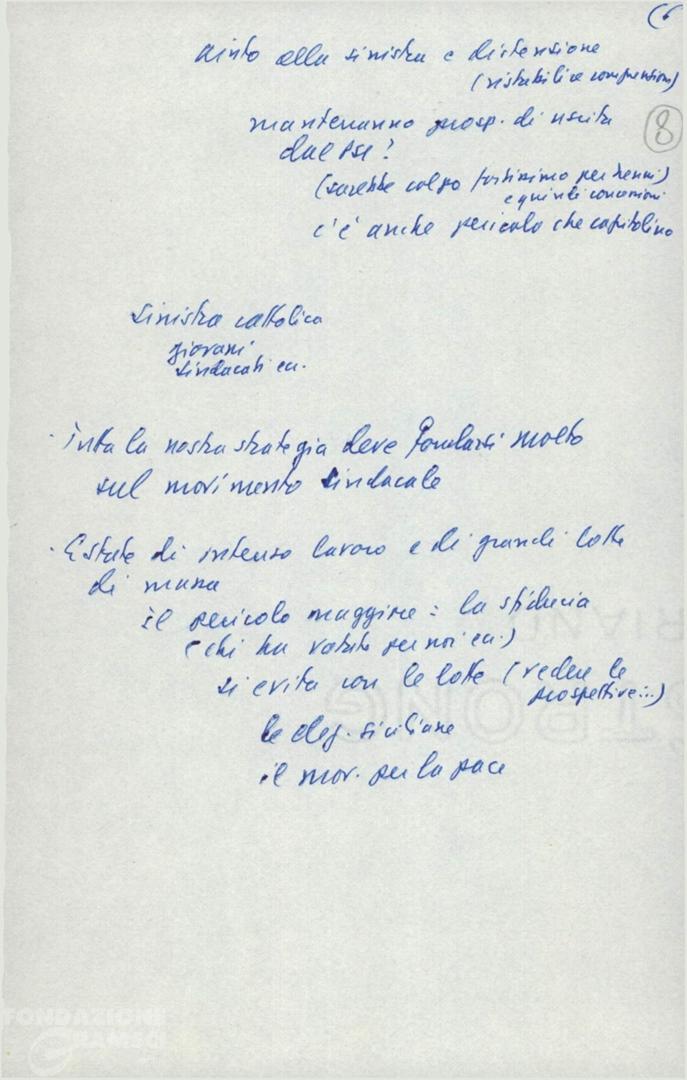 (6
aiuto alla sinistra e distensione
(ristabilire
8
manteranno prosp. di uscita
dal PSI?
(sarebbe colpo fortissimo per Nenni)
e quindi concessioni
c'è anche pericolo che capitolino
Sinistra cattolica
giovani
sindacati ecc.
· Tutta la nostra strategia deve fondarsi molto
sul movimento sindacale
· Estate di intenso lavoro e di grandi lotte
di massa
il pericolo maggiore: la sfiducia
(chi ha votato per noi ecc.)
si evita con le lotte (vedere le
prospettive...)
le eleg. siciliane
il mov. per la pace
FONDAZIONE
GRAMSCI